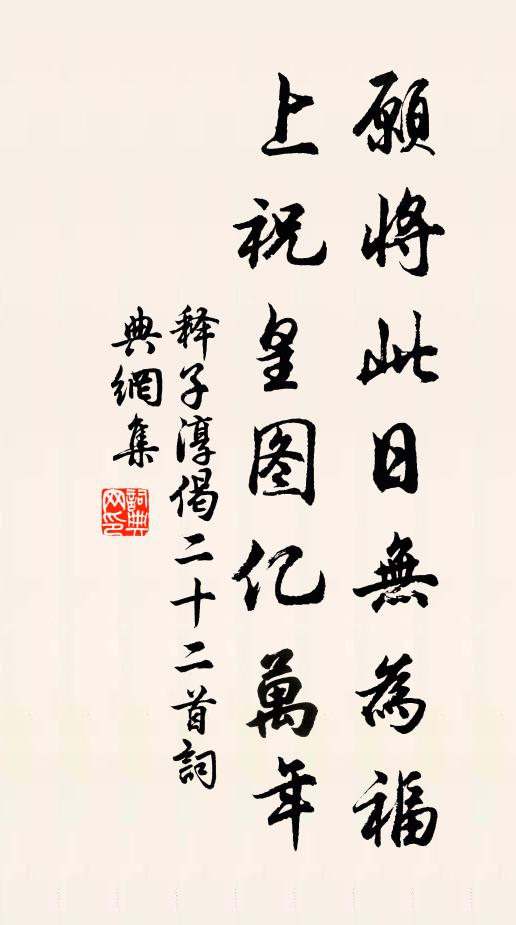 願將此日無為福
上祝皇图亿萬年
释子淳偈二十二首詞
典網集
詞典网印